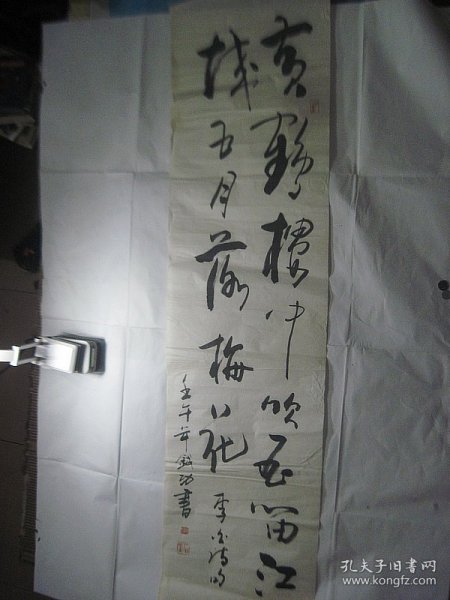 黄鶴樓中吹玉笛江
城五月落梅花
李白诗
壬午年 書
孔夫子旧书网
www.kongfz.com